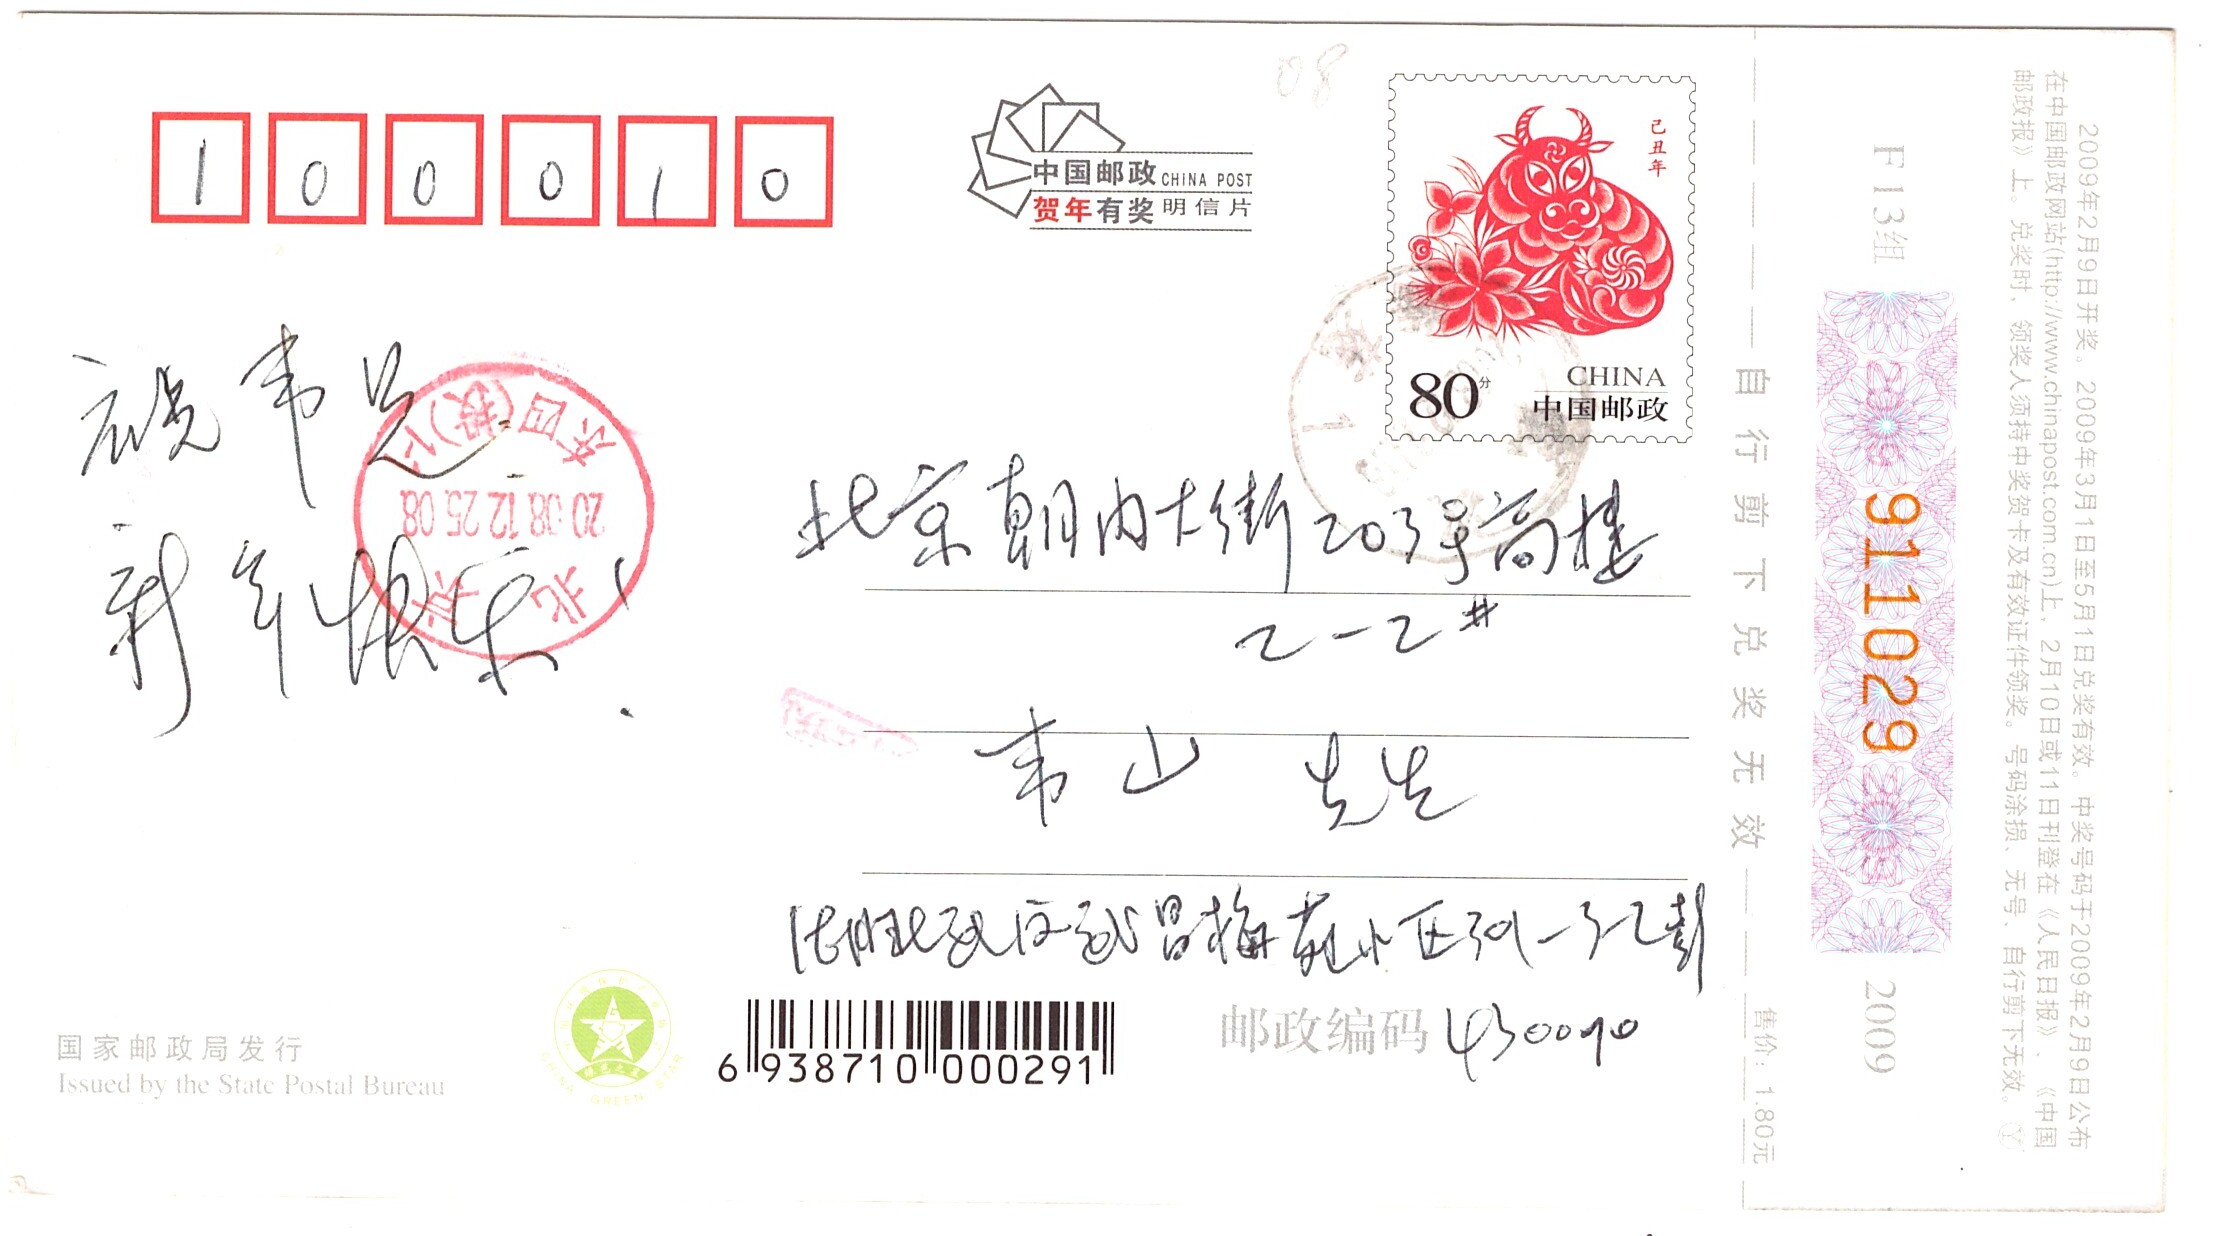 100010
08
中国邮政 CHINA POST
贺年有奖 明信片
己丑年
80分
CHINA
中国邮政
祝韦兄
新年快乐!
北京
2008.12.25.08
东四(投)
北京朝内大街203号高楼
2-2#
韦山 先生
武昌梅苑小区
邮政编码 430070
国家邮政局发行
Issued by the State Postal Bureau
CHINA GREEN STAR
6 938710 000291
自行剪下兑奖无效
售价:1.80元
F13组
911029
2009
2009年2月9日开奖。2009年3月1日至5月1日兑奖有效。中奖号码于2009年2月9日公布
在中国邮政网站(http://www.chinapost.com.cn)上、2月10日或11日刊登在《人民日报》、《中国
邮政报》上。兑奖时、领奖人须持中奖贺卡及有效证件领奖。号码涂损、无号、自行剪下无效。